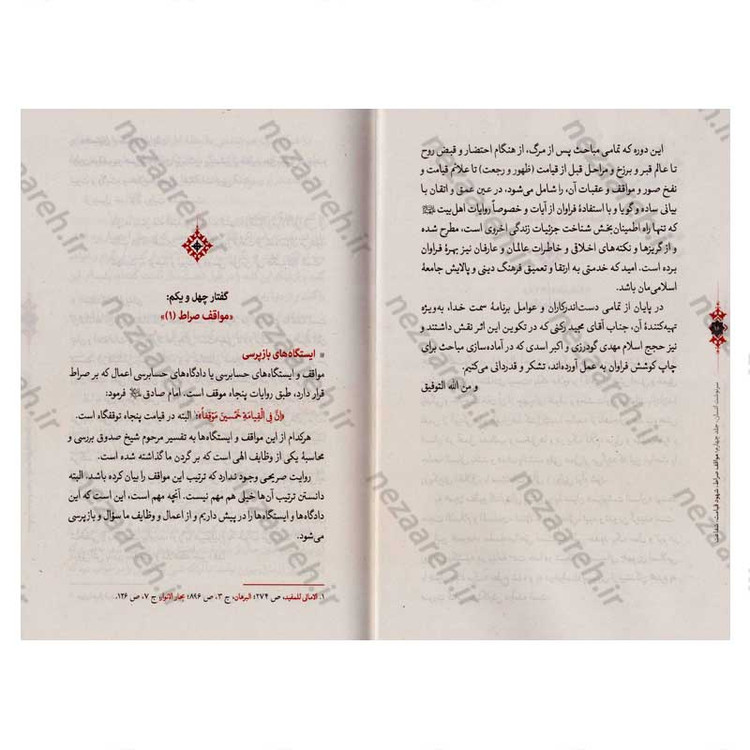 این دوره که تمامی مباحث پس از مرگ، از هنگام احتضار و قبض روح
تا عالم قبر و برزخ و مراحل قبل از قیامت (ظهور و رجعت) تا علائم قیامت و
نفخ صور و مواقف و عقبات آن، را شامل می‌شود، در عین عمق و اتقان با
بیانی ساده و گویا و با استفادهٔ فراوان از آیات و خصوصاً روایات اهل‌بیت
که تنها راه اطمینان‌بخش شناخت جزئیات زندگی اخروی است، مطرح شده
و از گریزها و نکته‌های اخلاقی و خاطرات عالمان و عارفان نیز بهرهٔ فراوان
برده است. امید که خدمتی به ارتقا و تعمیق فرهنگ دینی و پالایش جامعهٔ
اسلامی‌مان باشد.
در پایان از تمامی دست‌اندرکاران و عوامل برنامهٔ سمت خدا، به‌ویژه
تهیه‌کنندهٔ آن، جناب آقای مجید رکنی که در تکوین این اثر نقش داشتند و
نیز حجج اسلام مهدی گودرزی و اکبر اسدی که در آماده‌سازی مباحث برای
چاپ کوشش فراوان به عمل آورده‌اند، تشکر و قدردانی می‌کنیم.
و من الله التوفیق
سرنوشت انسان، جلد چهارم: مواقف صراط، شهود قیامت، شفاعت
گفتار چهل و یکم:
«مواقف صراط (۱)»
ایستگاه‌های بازپرسی
مواقف و ایستگاه‌های حسابرسی یا دادگاه‌های حسابرسی اعمال که بر صراط
قرار دارد، طبق روایات پنجاه موقف است. امام صادق فرمود:
«إنَّ فِي الْقِيامَةِ خَمْسينَ مَوْقِفاً»؛ البته در قیامت پنجاه توقفگاه است.
هرکدام از این مواقف و ایستگاه‌ها به تفسیر مرحوم شیخ صدوق بررسی و
محاسبهٔ یکی از وظایف الهی است که بر گردن ما گذاشته شده است.
روایت صریحی وجود ندارد که ترتیب این مواقف را بیان کرده باشد. البته
دانستن ترتیب آن‌ها خیلی هم مهم نیست. آنچه مهم است، این است که این
دادگاه‌ها و ایستگاه‌ها را در پیش داریم و از اعمال و وظایف ما سؤال و بازپرسی
می‌شود.
۱. الامالی للمفید، ص ۲۷۴؛ البرهان، ج ۳، ص ۸۹۶؛ بحار الانوار، ج ۷، ص ۱۲۶.
nezaareh.ir